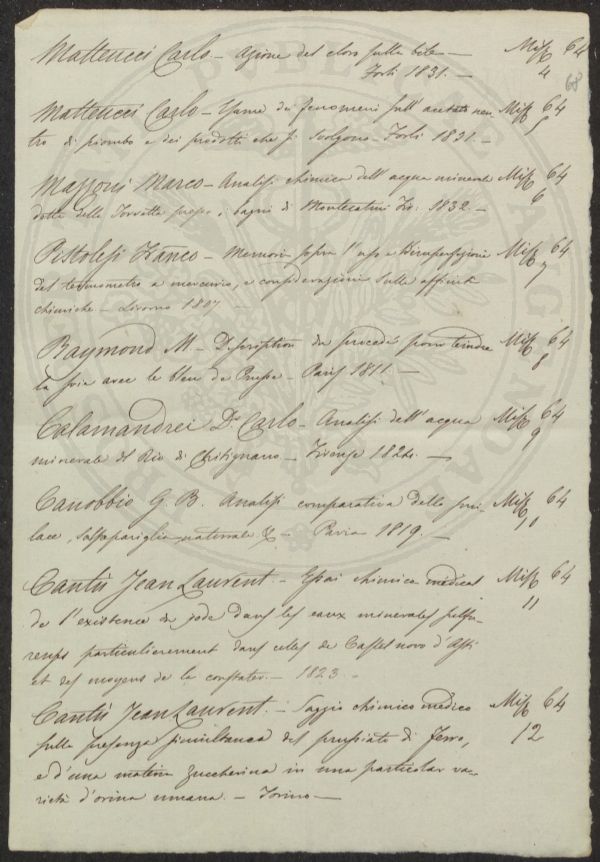 Matteucci Carlo – Azione del cloro sulla bile – Misc. 64
Forlì 1831. – 4
68
Matteucci Carlo – Esame dei fenomeni sull' acetato neu- Misc. 64
tro di piombo e dei prodotti che si svolgono – Forlì 1831. – 5
Mazzoni Marco – Analisi chimica dell' acqua minerale Misc. 64
detta della Torretta presso i bagni di Montecatini 1832. – 6
Pistolesi Franco – Memoria sopra l' uso e Misc. 64
del termometro a mercurio, e considerazioni sulle affinità 7
chimiche – Livorno 1807 –
Raymond M. – Description du procédé pour teindre Misc. 64
la soie avec le bleu de Prusse – Paris 1811. – 8
Calamandrei D. Carlo – Analisi dell' acqua Misc. 64
minerale del Rio di Chitignano – Firenze 1824. – 9
Canobbio G. B. Analisi comparativa dello smi- Misc. 64
lace, salsapariglia naturale & – Pavia 1819. – 10
Cantù Jean Laurent – Essai chimico medical Misc. 64
de l'existence de jode dans les eaux minerales sulfu- 11
reuses particulierement dans celles de Castel novo d'Asti
et des moyens de la constater. – 1823. –
Cantù Jean Laurent. – Saggio chimico medico Misc. 64
sulla presenza simultanea del prussiato di ferro, 12
e d'una materia zuccherina in una particolar va-
rietà d'orina umana. – Torino –